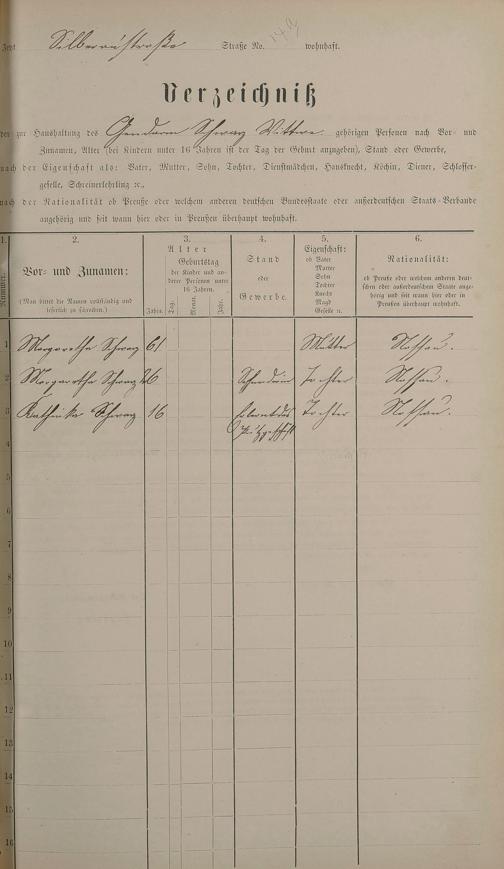 Jetzt Silberaustraße Straße No. 14a wohnhaft.
Verzeichniß
der zur Haushaltung des Gendarm Schwarz Wittwe gehörigen Personen nach Vor- und
Zunamen, Alter (bei Kindern unter 16 Jahren ist der Tag der Geburt anzugeben), Stand oder Gewerbe,
nach der Eigenschaft als: Vater, Mutter, Sohn, Tochter, Dienstmädchen, Hausknecht, Köchin, Diener, Schlosser-
geselle, Schreinerlehrling ꝛc.,
nach der Nationalität ob Preuße oder welchem anderen deutschen Bundesstaate oder außerdeutschen Staats-Verbande
angehörig und seit wann hier oder in Preußen überhaupt wohnhaft.
1.
Nummer.
2.
Vor- und Zunamen:
(Man bittet die Namen vollständig und
leserlich zu schreiben.)
3.
Alter
Geburtstag
der Kinder und an-
derer Personen unter
16 Jahren.
Jahre. Tag. Monat. Jahr.
4.
Stand
oder
Gewerbe.
5.
Eigenschaft:
ob Vater
Mutter
Sohn
Tochter
Knecht
Magd
Geselle ꝛc.
6.
Nationalität:
ob Preuße oder welchem anderen deut-
schen oder außerdeutschen Staate ange-
hörig und seit wann hier oder in
Preußen überhaupt wohnhaft.
1 Margaretha Schwarz 61 Mutter Nassau.
2 Margaretha Schwarz 26 Tochter Nassau.
3 Katharina Schwarz 16 Tochter Nassau.
4
5
6
7
8
9
10
11
12
13
14
15
16